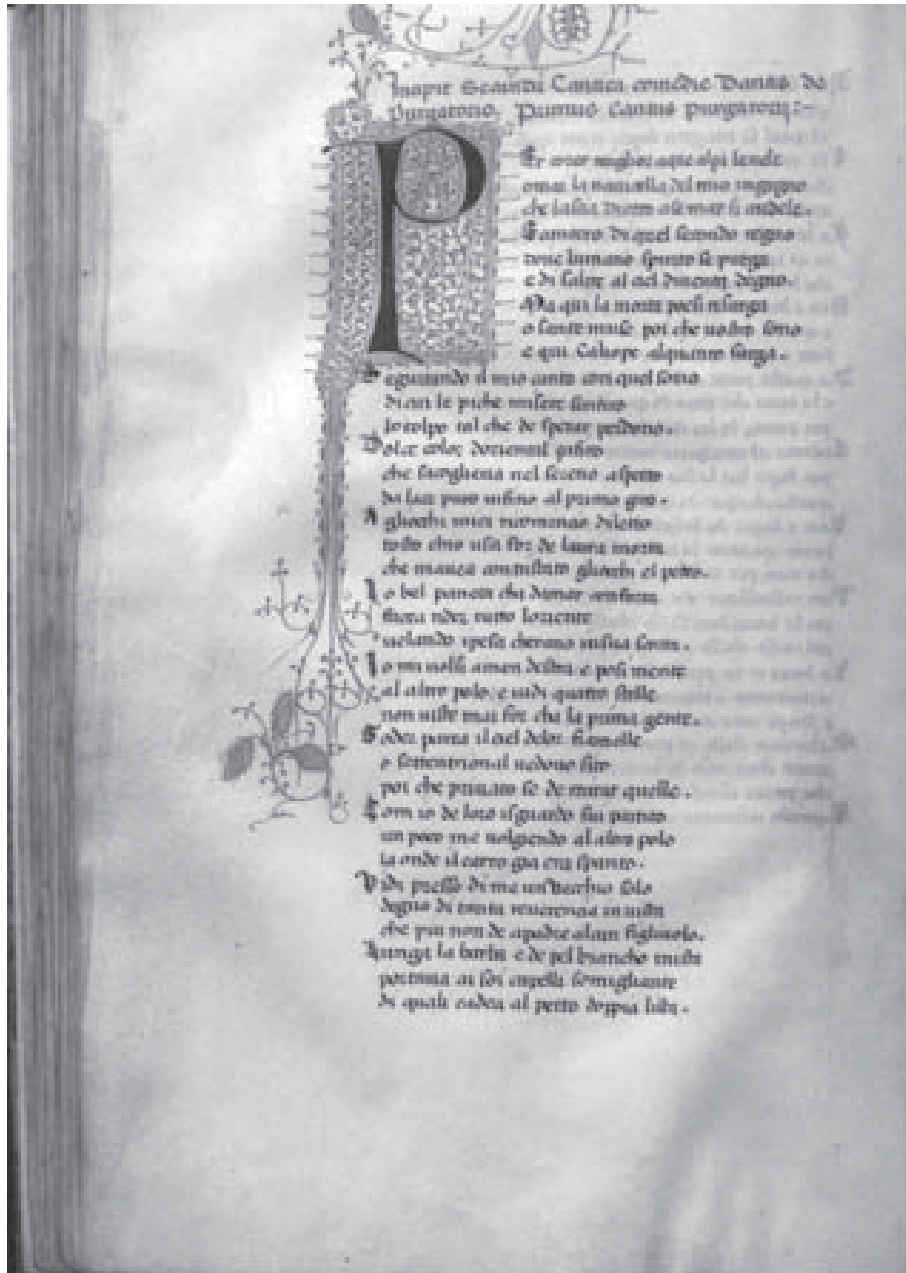 Incipit Secunda Cantica comedie Dantis de
Purgatorio. Primus Cantus purgatorij:-
PEr correr miglior aque alça le uele
omai la nauicella del mio ingegno
che lascia dietro a se mar si crudele.
Cantero di quel secondo regno
doue lumano spirito si purga
e di salire al ciel diuenta degno.
Ma qui la morta poesi risurga
o sante muse poi che uostro sono
e qui Caliope alquanto surga.
Seguitando il mio canto con quel sono
di cui le piche misere sentiro
lo colpo tal che de sperar perdono.
Dolce color doriental çafiro
che saccoglieua nel sereno aspetto
da laer puro infino al primo giro.
Agliochi miei ricomincio diletto
tosto chio usci for de laura morta
che mauea contristato gliochi el petto.
Lo bel pianeta cha damar conforta
faceua rider tutto loriente
uelando i pesci cherano in sua scorta.
Io mi uolsi a man destra e posi mente
al altro polo e uidi quatro stelle
non uiste mai for cha la prima gente.
Goder pareua il ciel de lor fiamelle
o settentrional uedouo sito
poi che priuato se de mirar quelle.
Com io de loro isguardo fui partito
un poco me uolgiendo al altro polo
la onde il carro gia era sparito.
Vidi presso di me un uecchio solo
degno di tanta reuerencia in uista
che piu non de a padre alcun figliuolo.
Lunga la barba e de pel biancho mista
portaua ai soi capelli somigliante
di quali cadea al petto doppia lista.